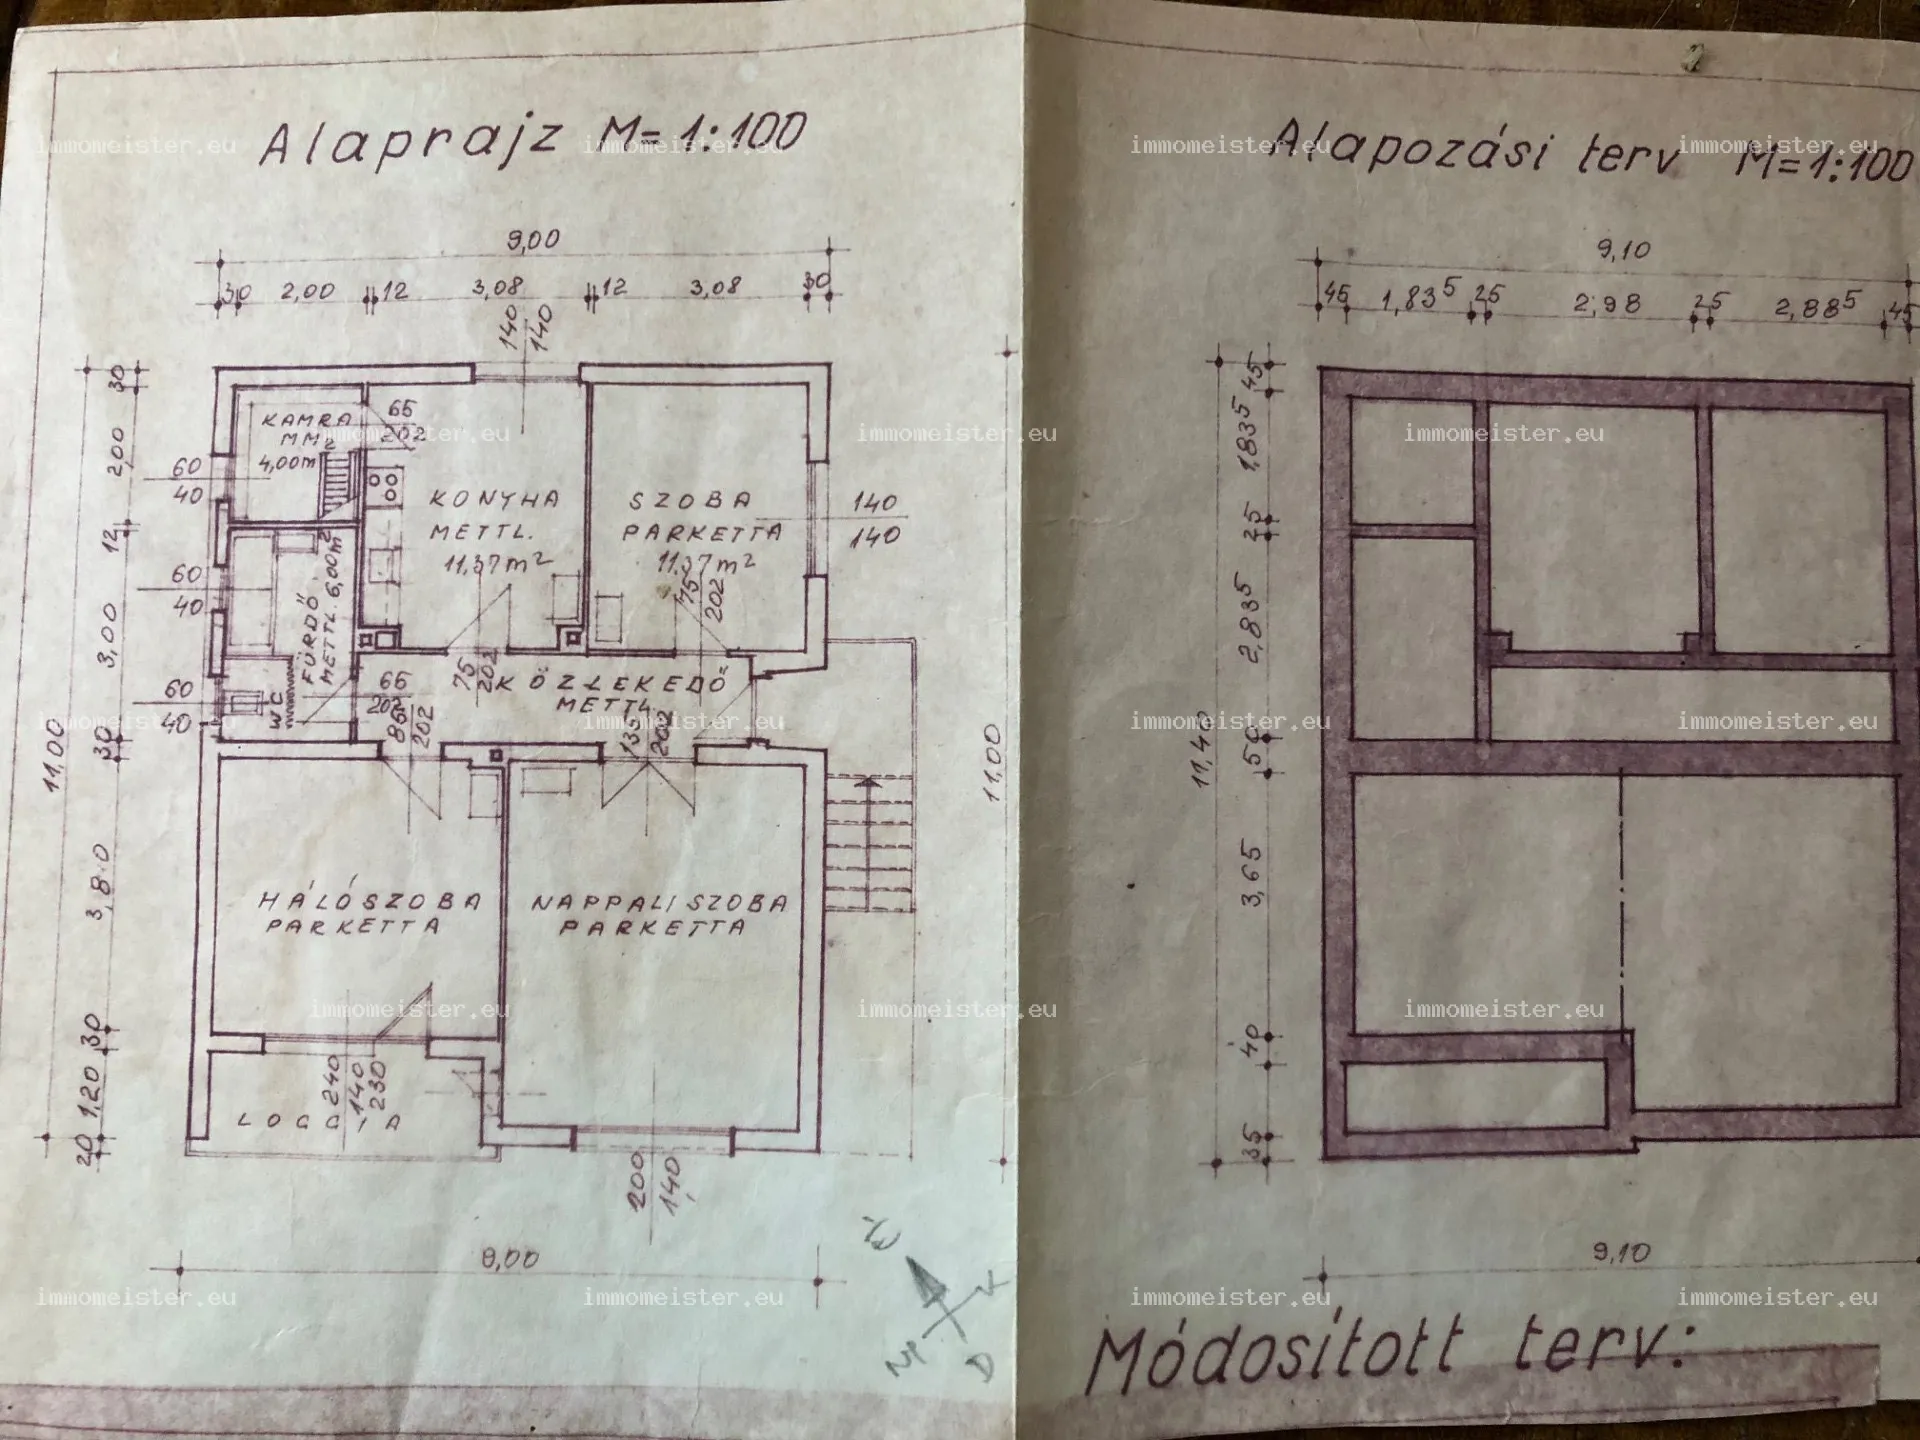 Alaprajz M=1:100
9,00
30 2,00 12 3,08 12 3,08 30
140
140
30
2,00
12
3,00
30
3,80
30
1,20
20
11,00
KAMRA
MM2
4,00m²
65
202
60
40
60
40
60
40
KONYHA
METTL.
11,37m²
SZOBA
PARKETTA
11,37m²
140
140
FÜRDŐ
METTL. 6,00m²
WC
75
202
75
202
65
202
KÖZLEKEDŐ
METTL.
86
202
135
202
HÁLÓSZOBA
PARKETTA
NAPPALI SZOBA
PARKETTA
11,00
LOGGIA
240
140
230
200
140
9,00
É
K
D
NY
Alapozási terv M=1:100
9,10
45 1,835 25 2,98 25 2,885 45
45
1,835
25
2,835
50
3,65
40
35
11,40
9,10
Módosított terv:
immomeister.eu immomeister.eu immomeister.eu immomeister.eu
immomeister.eu immomeister.eu immomeister.eu
immomeister.eu immomeister.eu immomeister.eu immomeister.eu
immomeister.eu immomeister.eu immomeister.eu
immomeister.eu immomeister.eu immomeister.eu immomeister.eu